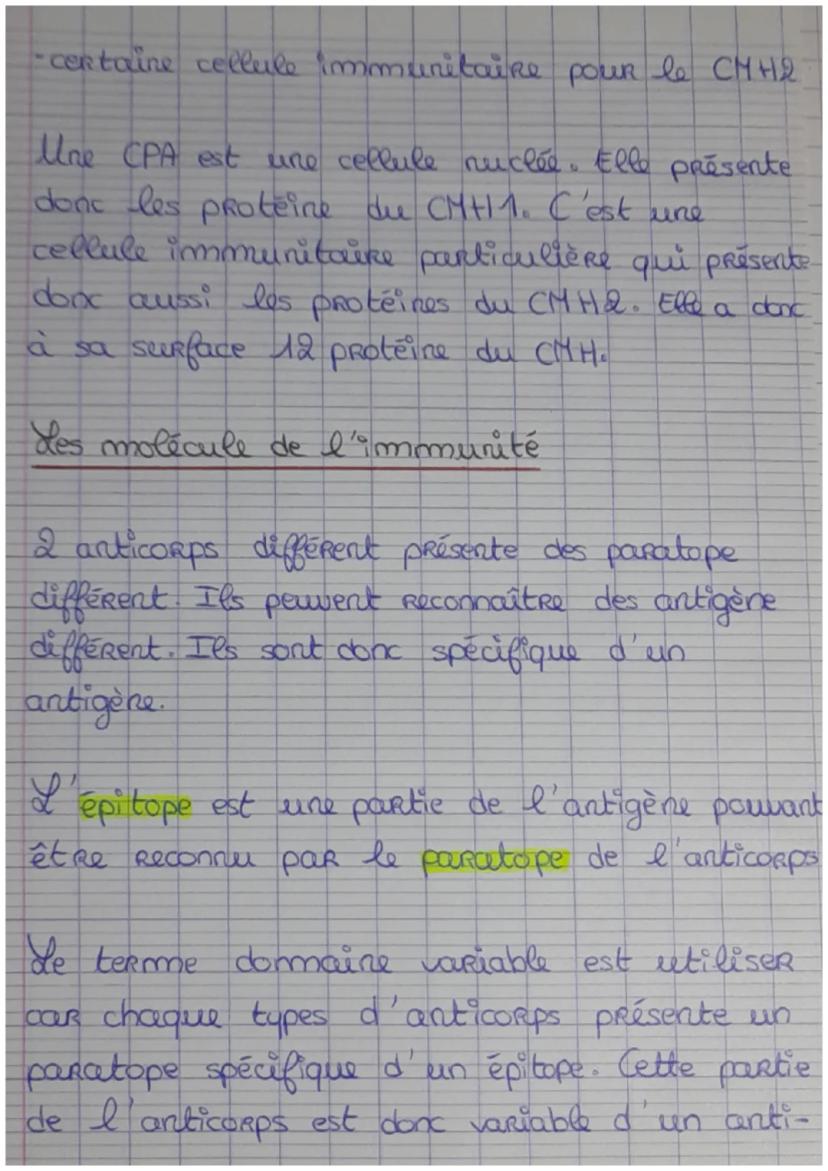 -certaine cellule immunitaire pour le CMH2
Une CPA est une cellule nuclée. Elle présente
donc les protéine du CMH1. C'est une
cellule immunitaire particulière qui présente
donc aussi les protéines du CMH2. Elle a donc
à sa surface 12 protéine du CMH.
Les molécule de l'immunité
2 anticorps différent présente des paratope
différent. Ils peuvent reconnaître des antigène
différent. Ils sont donc spécifique d'un
antigène.
L'épitope est une partie de l'antigène pouvant
être reconnu par le paratope de l'anticorps
Le terme domaine variable est utiliser
car chaque types d'anticorps présente un
paratope spécifique d'un épitope. Cette partie
de l'anticorps est donc variable d'un anti-